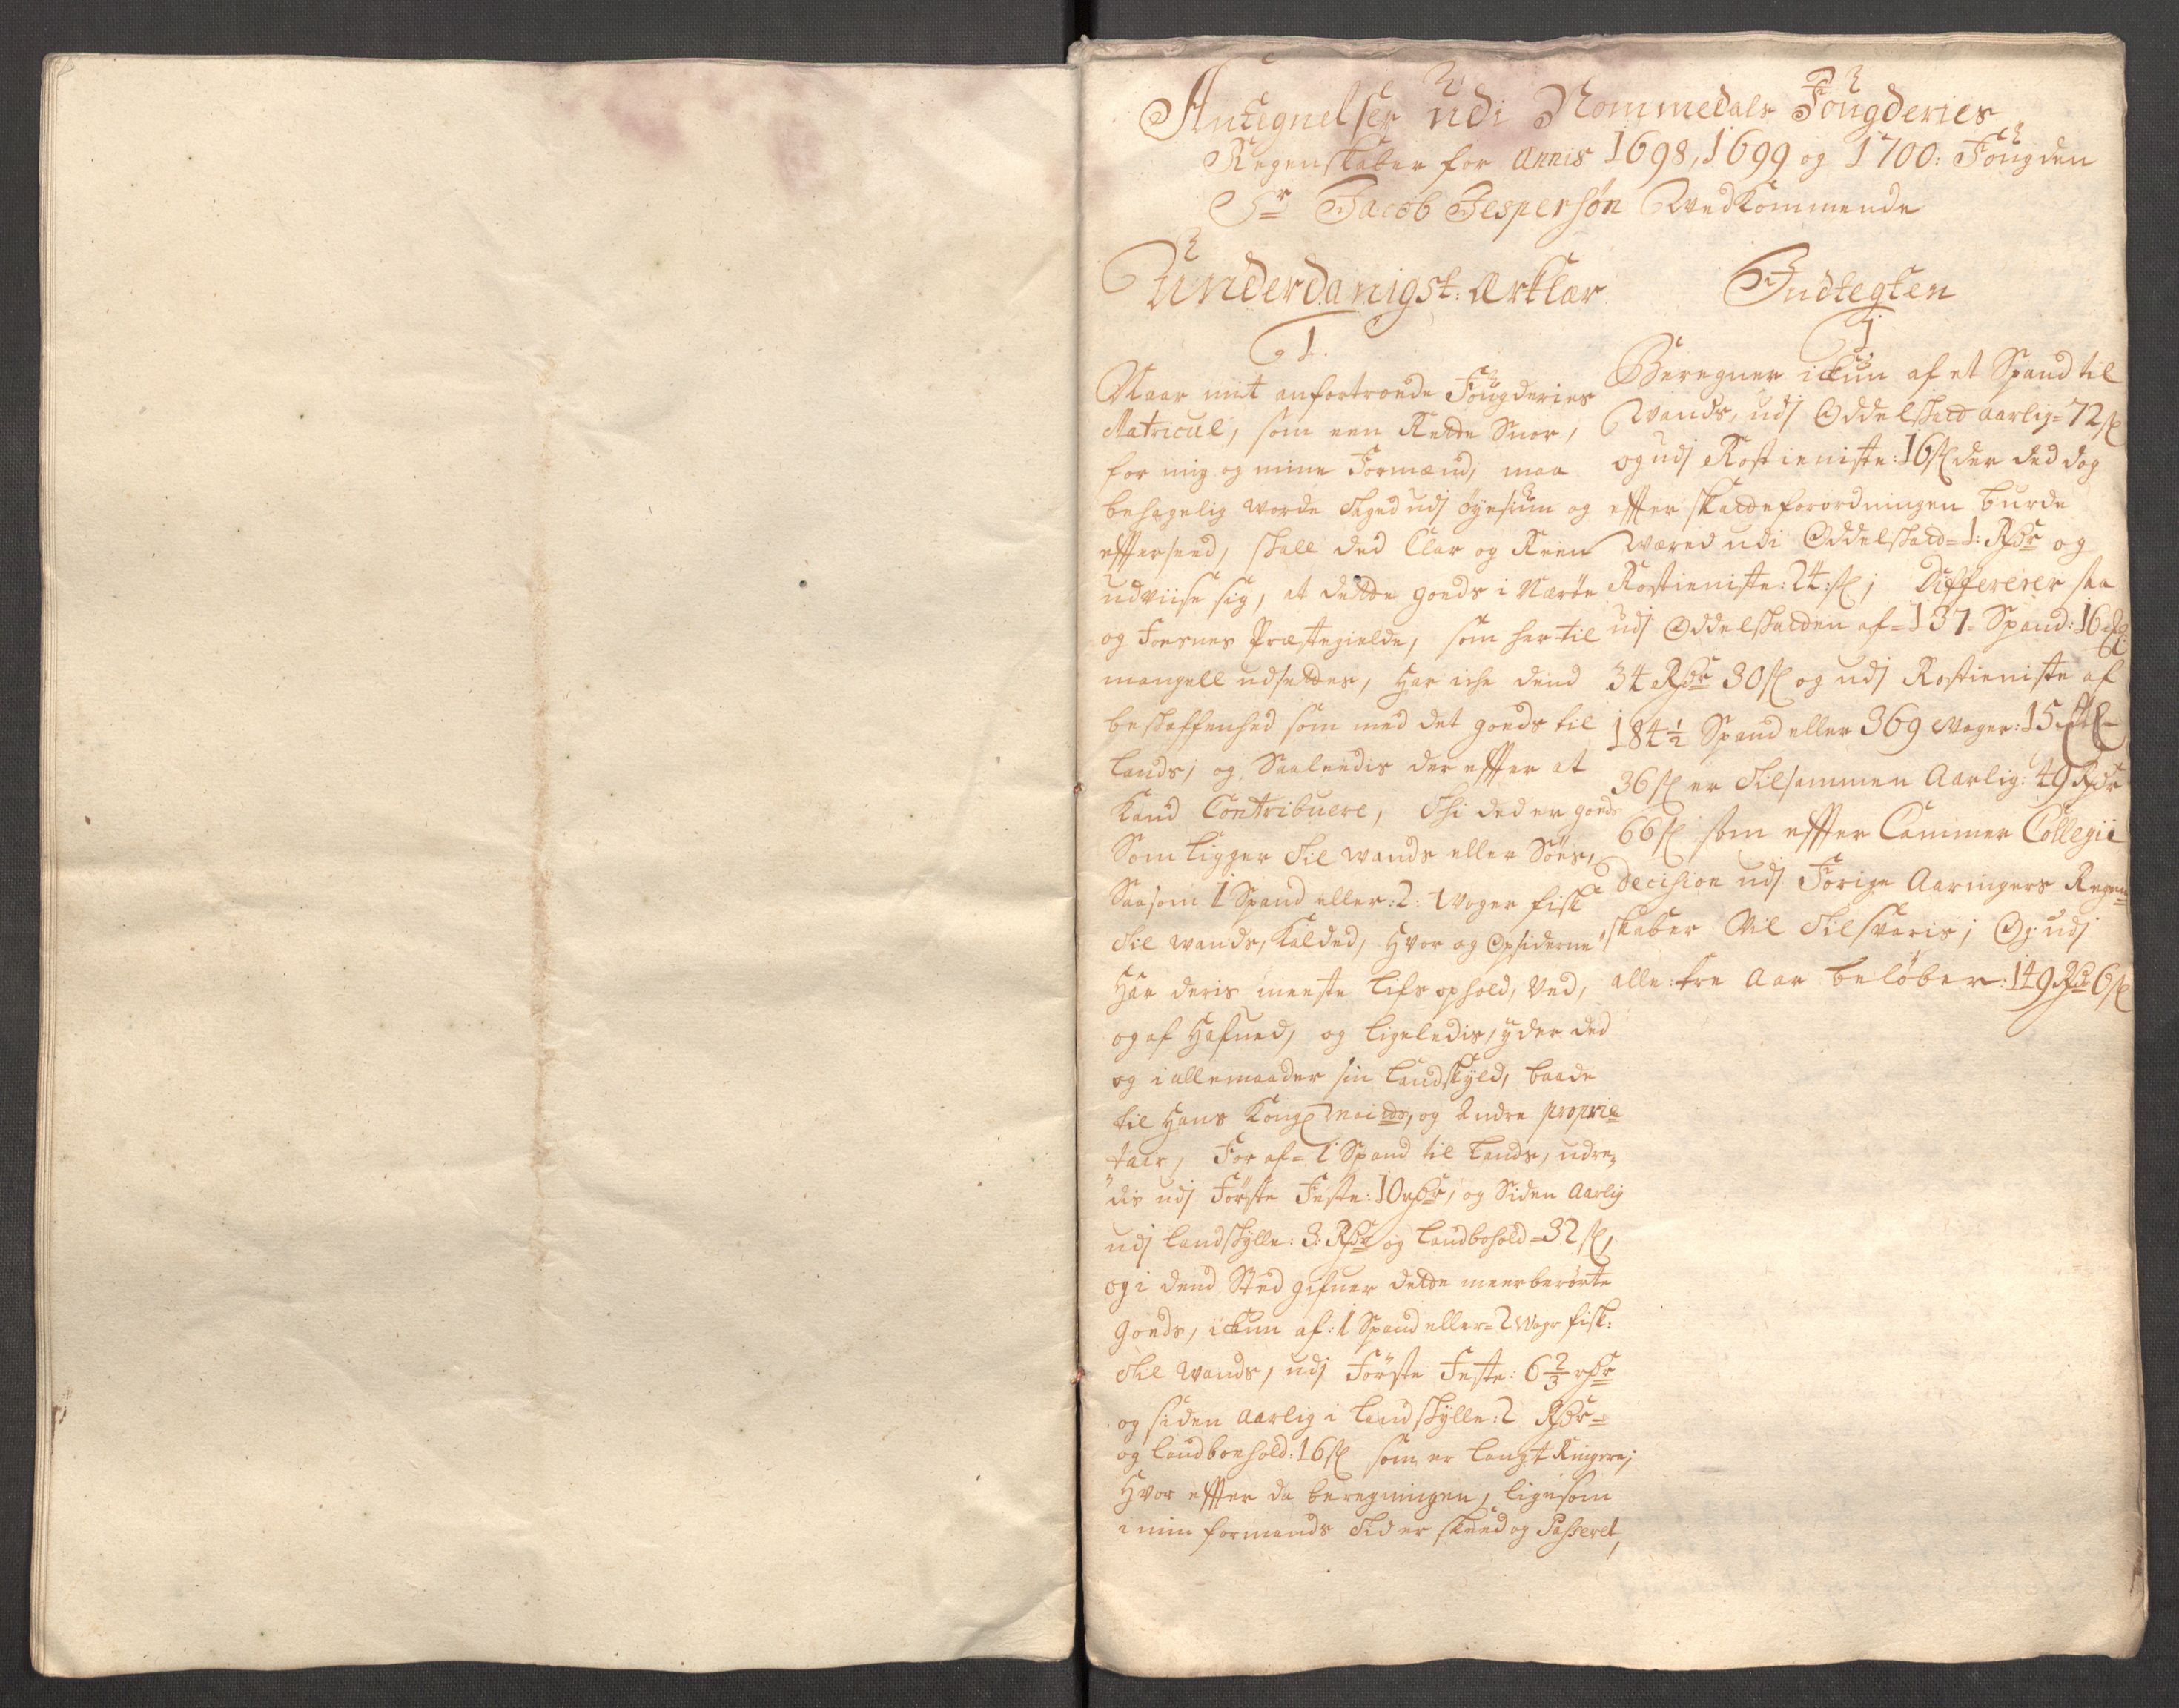 Antegnelser udi Nommedals Fougderies
Regenskaber for Annis 1698, 1699 og 1700: Fougden
Sr Jacob Jespersøn Wedkommende
Underdanigst: Ærklar
1.
Naar mit anfortroede Fougderies
Matricul, som een Rette Snor,
for mig og mine Formænd, maa
behagelig worde taged udj øyesiun og
efterseed, skall ded Clar og Reen
udviise sig, at dette goeds i Nærøe
og Foesnes Præstegielde, som her til
mangell udsettes, Har iche dend
beskaffenhed som med det goeds til
Lands; og Saaleedis der effter at
Kand Contribuere, Thi ded er goeds
Som Ligger til wands eller Søes,
Saasom 1 Spand eller: 2: Woger fisk
til wands, Kalded, Hvor og Opsiderne
Har deris meeste Lifs ophold, Ved,
og af Hafued, og Ligeledis, yder ded
og i allemaader sin Landskyld, baade
til Hans Kongl Maitts, og Andre proprie
tair, For af= 1 Spand til Lands, udre,,
dis udj Første Feste: 10 rdr, og Siden Aarlig
udj Landskylle: 3: Rdr og Landbohold= 32 s,
og i dend Sted gifuer dette meerberørte
goeds, ickun af: 1 Spand eller= 2 Wogr fisk:
til wands, udj Første Feste: 6 2/3 rdr
og siden Aarlig i Landskylle: 2 Rdr=
og Landboehold: 16 s som er Langt Ringere;
Hvor effter da beregningen, Ligesom
i min formands tid er skeed og Passeret,
Indtegten
1
Beregner ickun af et Spand til
Wands, udj Oddelskatt Aarlig= 72 s
og udj Rostieniste: 16 s der ded dog
effter skatteforordningen burde
wæred udi Oddelskatt= 1: Rdr og
Rostieniste: 24: s; Differerer saa
udj Oddelskatten af= 137 Spand: 16
34 Rdr 30 s og udj Rostieniste af
184 1/2 Spand eller 369 Woger: 15 Rdr
36 s er tilsammen Aarlig: 49 Rdr
66 s som effter Cammer Collegii
Decision udj Forige Aaringers Regen
skaber Vil tilsvaris; Og udj
alle tre Aar beløber: 149 Rdr 6 s